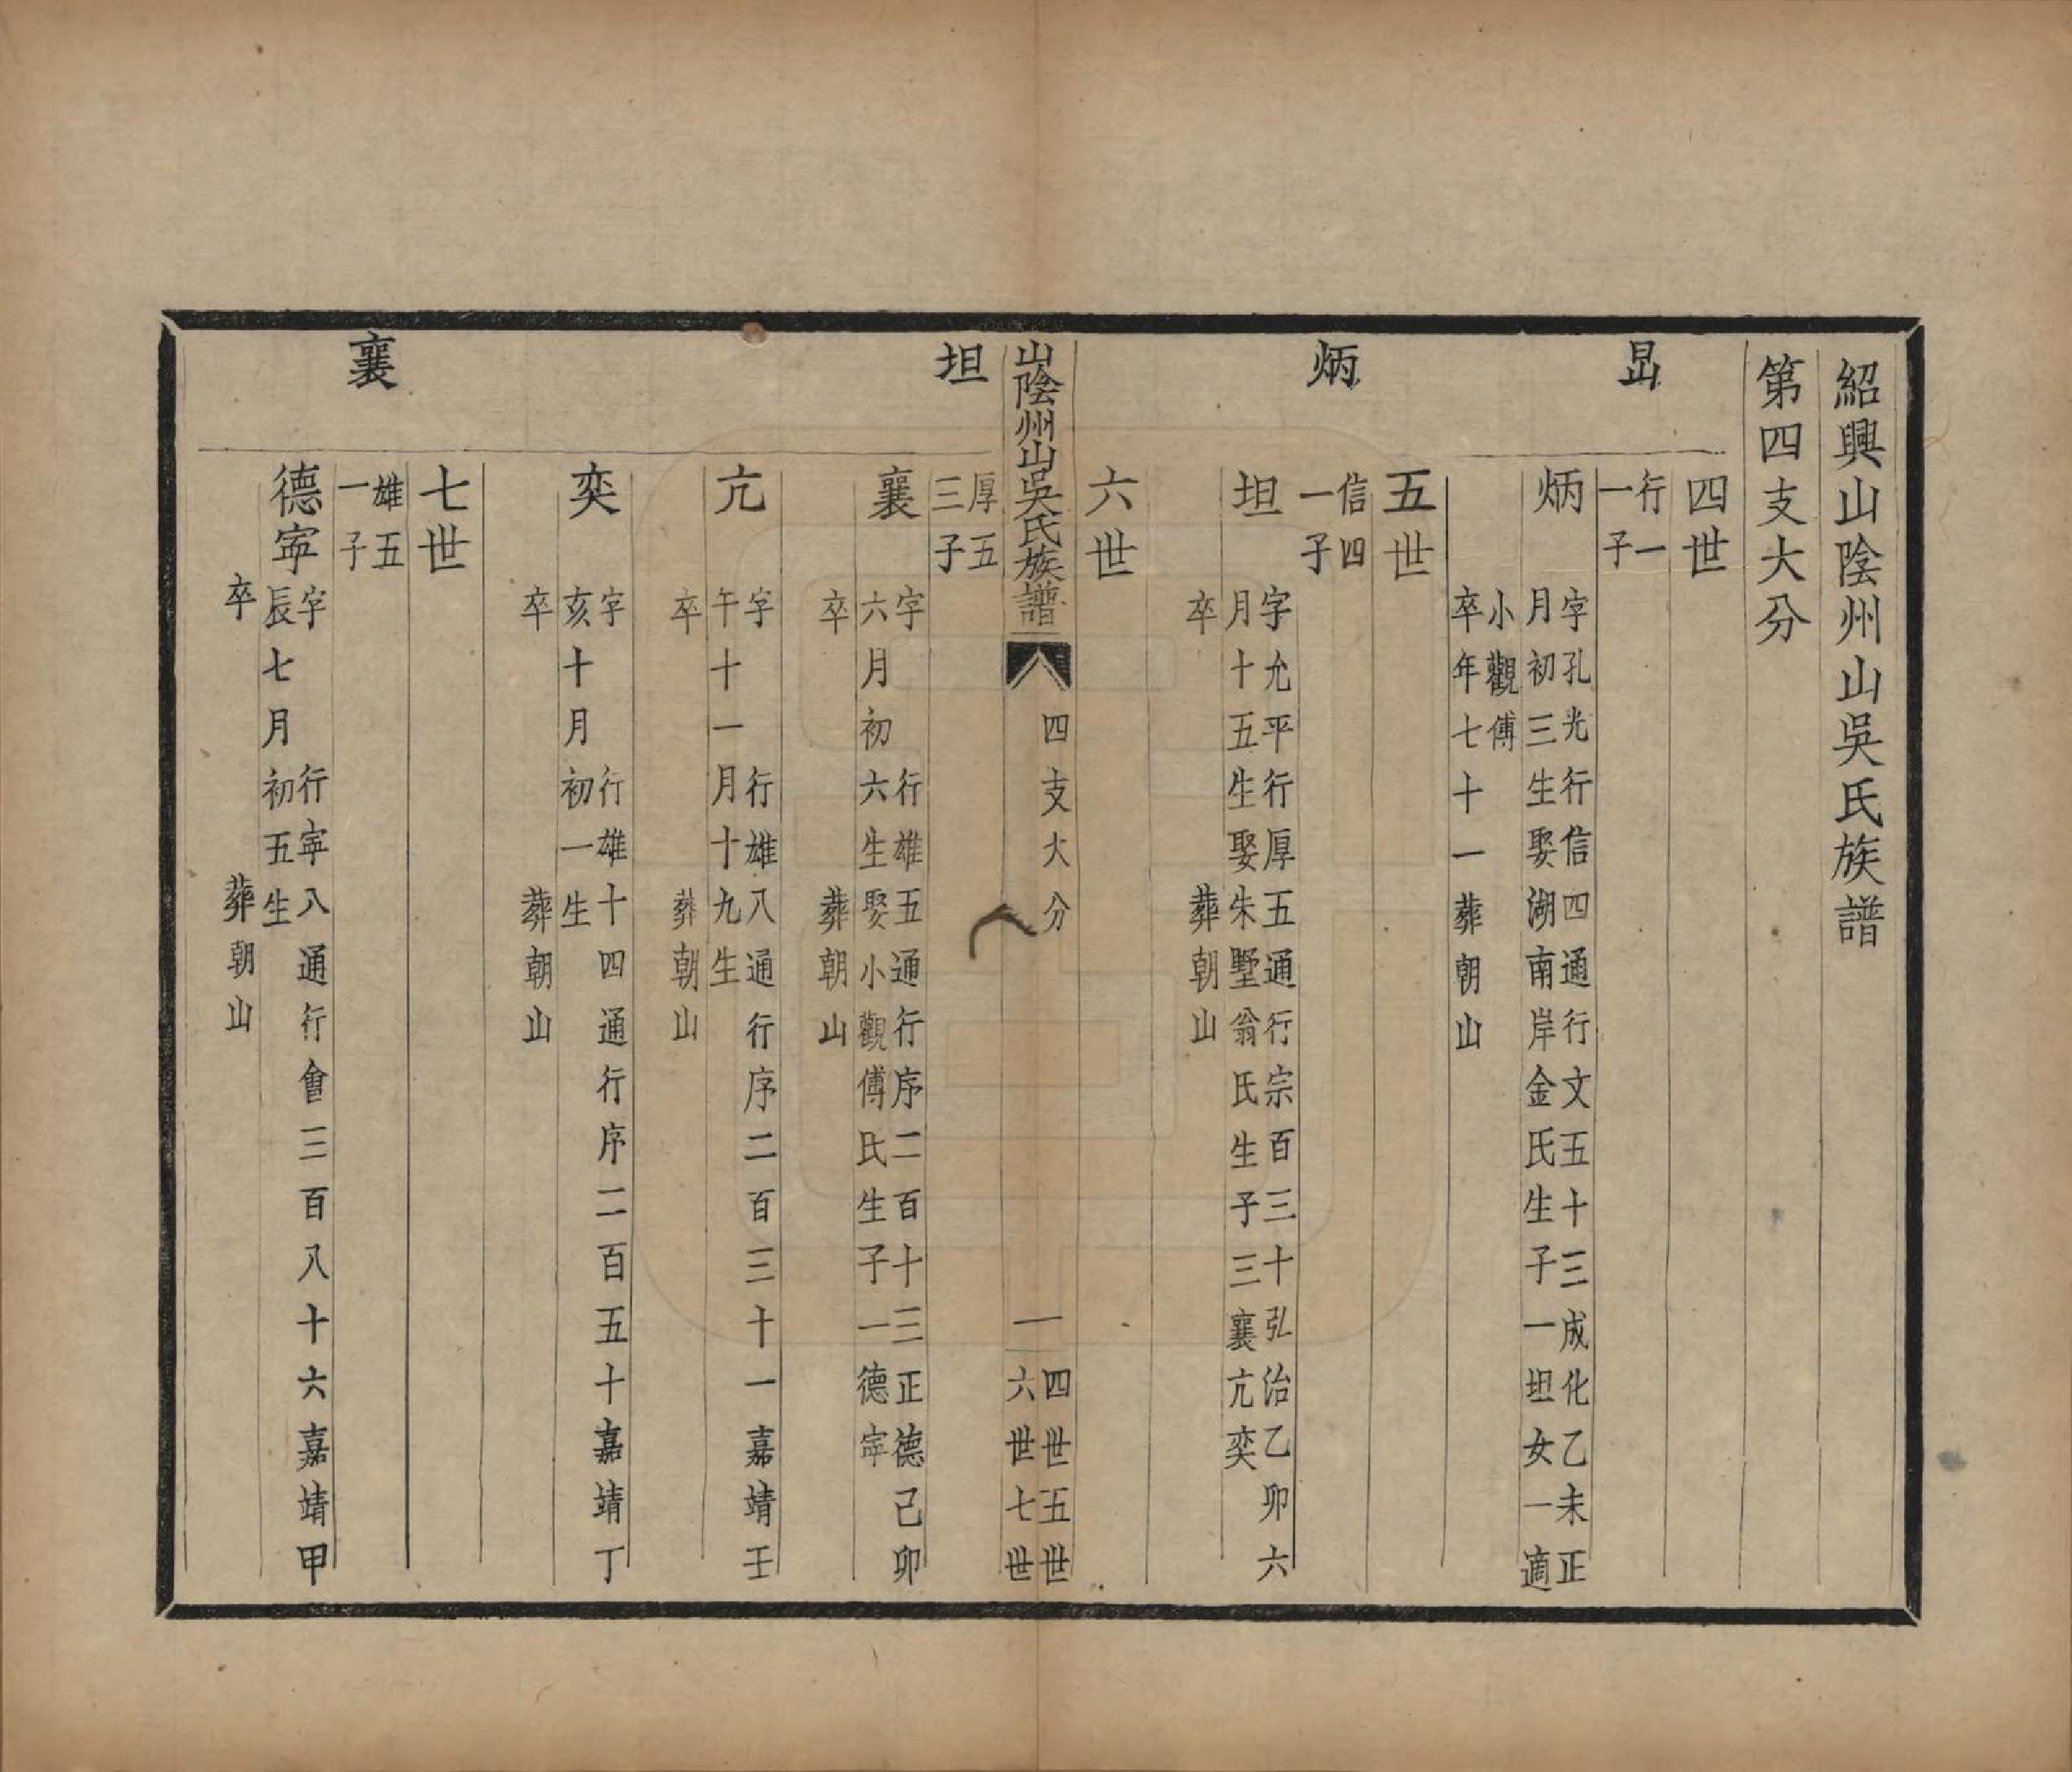 紹興山陰州山吳氏族譜
第四支大分
四世
行一
一子
炳
字孔光行信四通行文五十三成化乙未正
月初三生娶湖南岸金氏生子一坦女一適
小觀傅
卒年七十一葬朝山
五世
炳
信四
一子
坦
字允平行厚五通行宗百三十弘治乙卯六
月十五生娶朱墅翁氏生子三襄亢奕
卒葬朝山
六世
山陰州山吳氏族譜
四支大分
一
四世五世
六世七世
坦
厚五
三子
襄
字行雄五通行序二百十三正德己卯
六月初六生娶小觀傅氏生子一德寍
卒葬朝山
亢
字行雄八通行序二百三十一嘉靖壬
午十一月十九生
卒葬朝山
奕
字行雄十四通行序二百五十嘉靖丁
亥十月初一生
卒葬朝山
七世
襄
雄五
一子
德寍
字行寍八通行會三百八十六嘉靖甲
辰七月初五生
卒葬朝山